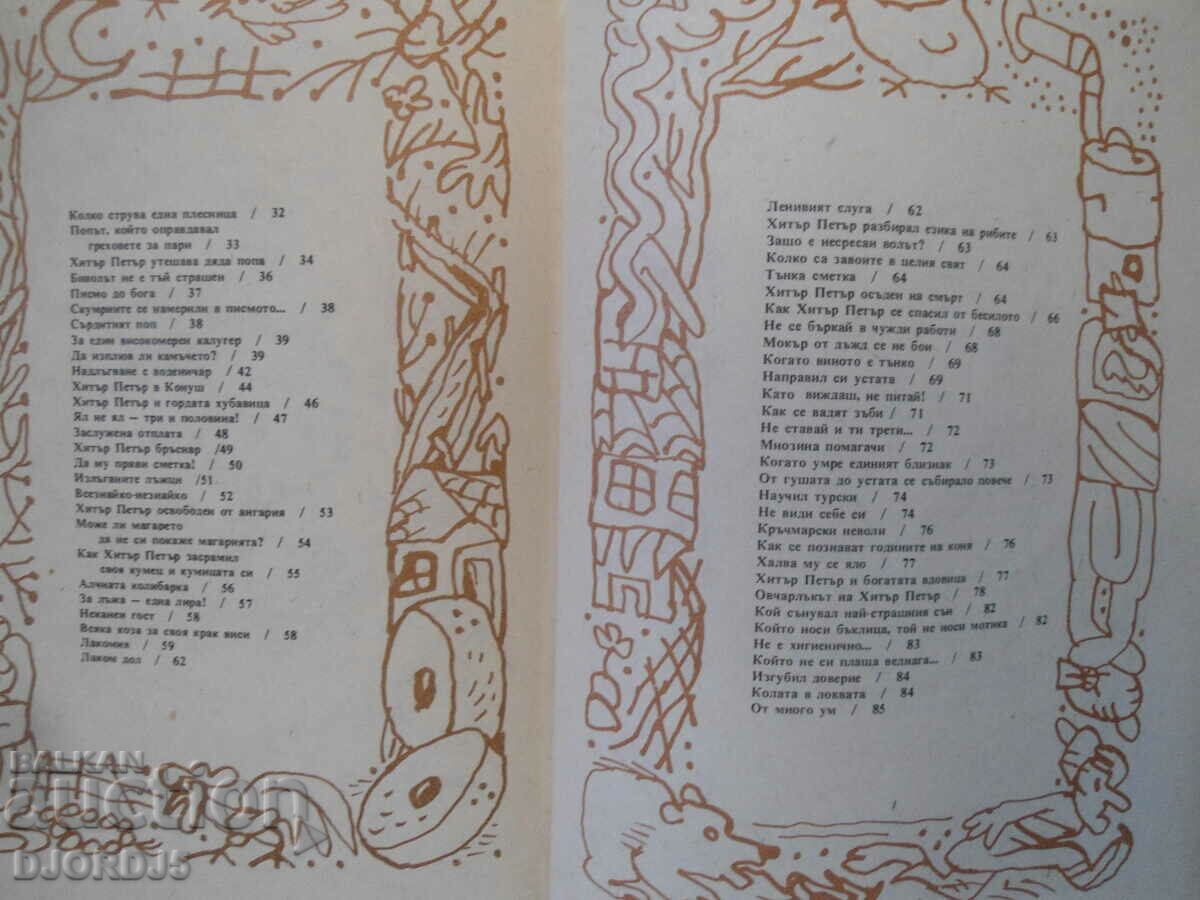 Колко струва една плесница / 32
Попът, който оправдавал
греховете за пари / 33
Хитър Петър утешава дяда попа / 34
Биволът не е тъй страшен / 36
Писмо до бога / 37
Скумриите се намерили в писмото... / 38
Сърдитият поп / 38
За един високомерен калугер / 39
Да изплюя ли камъчето? / 39
Надлъгване с воденичар / 42
Хитър Петър в Конуш / 44
Хитър Петър и гордата хубавица / 46
Ял не ял — три и половина! / 47
Заслужена отплата / 48
Хитър Петър бръснар /49
Да му прави сметка! / 50
Излъганите лъжци /51
Всезнайко-незнайко / 52
Хитър Петър освободен от ангария / 53
Може ли магарето
да не си покаже магарията? / 54
Как Хитър Петър засрамил
своя кумец и кумицата си / 55
Алчната колибарка / 56
За лъжа — една лира! / 57
Неканен гост / 58
Всяка коза за своя крак виси / 58
Лакомия / 59
Лаком дол / 62
Ленивият слуга / 62
Хитър Петър разбирал езика на рибите / 63
Защо е несресан волът? / 63
Колко са завоите в целия свят / 64
Тънка сметка / 64
Хитър Петър осъден на смърт / 64
Как Хитър Петър се спасил от бесилото / 66
Не се бъркай в чужди работи / 68
Мокър от дъжд се не бои / 68
Когато виното е тънко / 69
Направил си устата / 69
Като виждаш, не питай! / 71
Как се вадят зъби / 71
Не ставай и ти трети... / 72
Мнозина помагачи / 72
Когато умре единият близнак / 73
От гушата до устата се събирало повече / 73
Научил турски / 74
Не види себе си / 74
Кръчмарски неволи / 76
Как се познават годините на коня / 76
Халва му се яло / 77
Хитър Петър и богатата вдовица / 77
Овчарлъкът на Хитър Петър / 78
Кой сънувал най-страшния сън / 82
Който носи бъклица, той не носи мотика / 82
Не е хигиенично... / 83
Който не си плаща веднага... / 83
Изгубил доверие / 84
Колата в локвата / 84
От много ум / 85
BALKAN
auction
DJORDJ5